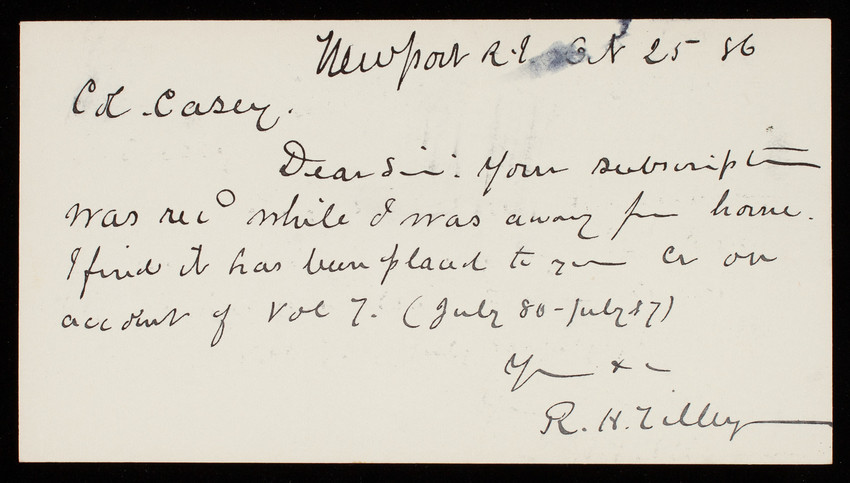 Newport R.I. Oct 25 86
Col. Casey.
Dear Sir: Your subscription
was recd while I was away from home.
I find it has been placed to your Cr on
account of Vol 7. (July 86-July 87)
Yrs &c
R. H. Tilley